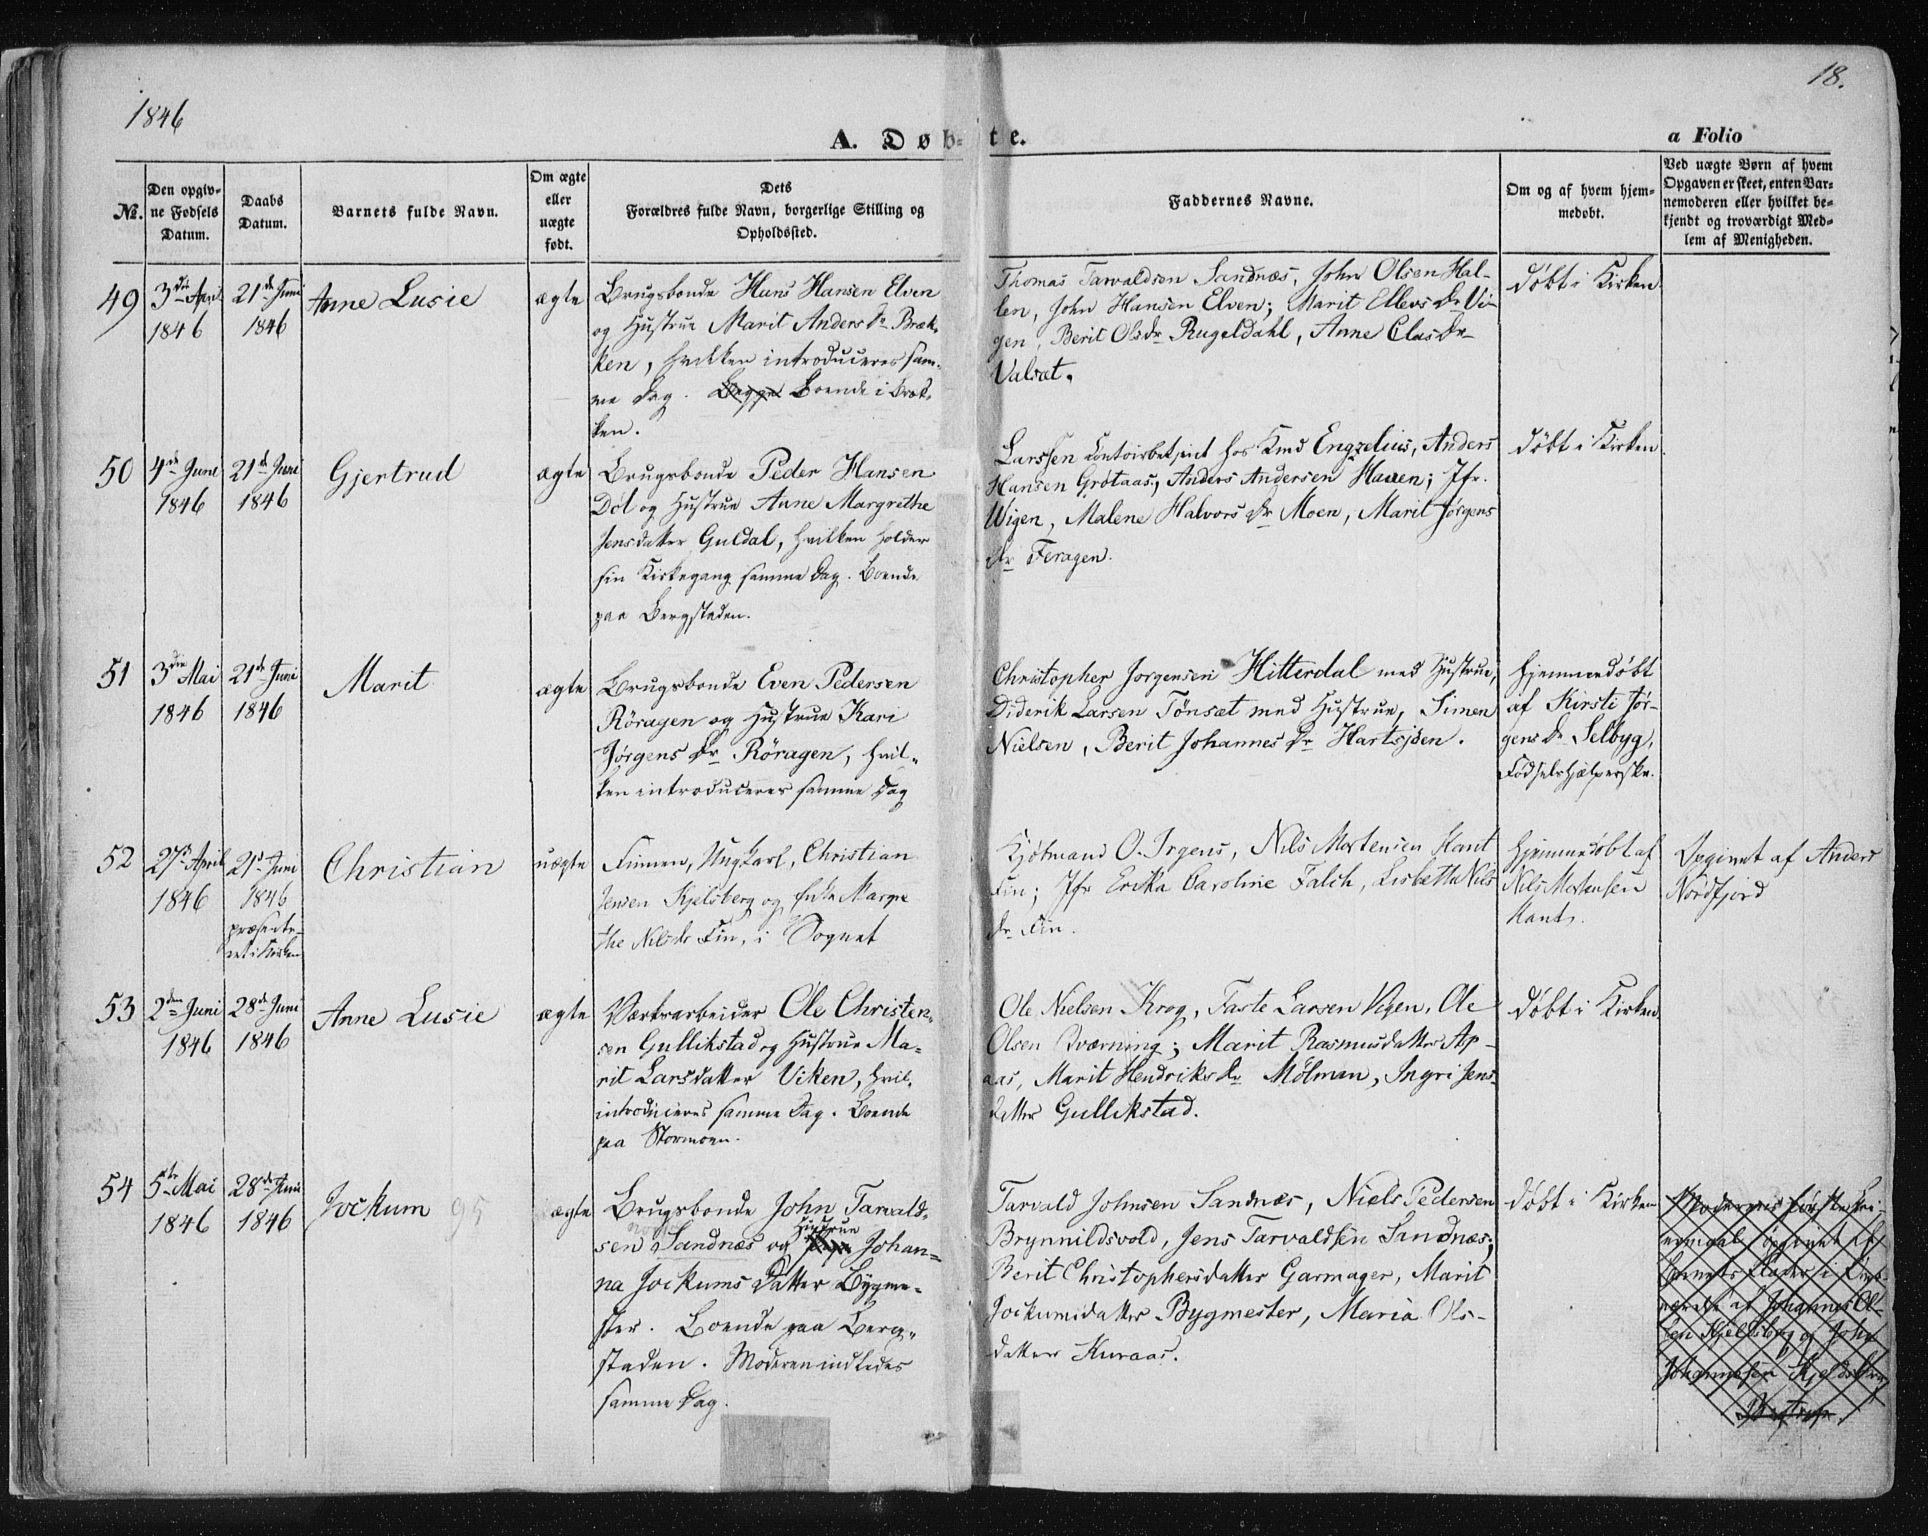 1846
18.
A. Døbte.
a Folio
No.
Den opgiv-
ne Fødsels
Datum.
Daabs
Datum.
Barnets fulde Navn.
Om ægte
eller
uægte
født.
Dets
Forældres fulde Navn, borgerlige Stilling og
Opholdssted.
Faddernes Navne.
Om og af hvem hjem-
medøbt.
Ved uægte Børn af hvem
Opgaven er skeet, enten Bar-
nemoderen eller hvilket be-
kjendt og troværdigt Med-
lem af Menigheden.
49
3die April
1846
21de Juni
1846
Anne Lusie
ægte
Brugsbonde Hans Hansen Elven
og Hustrue Marit Anders Dr Bræk-
ken, hvilken introduceres sam-
me Dag. Begge Boende i Bræk-
ken.
Thomas Tarvaldsen Sandnæs, John Olsen Hal-
len, John Hansen Elven; Marit Ellevs Dr Vi-
gen, Berit Olsdr Rugeldahl, Anne Clas Dr
Valsæt.
døbt i Kirken
50
4de Juni
1846
21de Juni
1846
Gjertrud
ægte
Brugsbonde Peder Hansen
Døl og Hustrue Anne Margrethe
Jensdatter Guldal, hvilken holder
sin Kirkegang samme Dag. Boende
paa Bergstaden.
Larssen Contoirbetjent hos Kmd Engzelius, Anders
Hansen Grötaas, Anders Andersen Hauen; Jfr.
Wigen, Malene Halvors Dr Moen, Marit Jørgens
Dr Feragen.
døbt i Kirken
51
3die Mai
1846
21de Juni
1846
Marit
ægte
Brugsbonde Even Pedersen
Röragen og Hustrue Kari
Jørgens Dr Röragen, hvil-
ken introduceres samme Dag
Christopher Jorgensen Hitterdal med Hustrue,
Diderik Larsen Tönsæt med Hustrue, Simen
Nielsen, Berit Johannes Dr Hartsjöen.
hjemmedøbt
af Kirsti Jør-
gens Dr Selbyg,
Fødselshjælperske.
52
27de April
1846
21de Juni
1846
præsente-
ret i Kirken
Christian
uægte
Finnen, Ungkarl, Christian
Jensen Kjelsberg og Enke Margre
the Nilsdr Fin, i Sognet
Kjøbmand O. Irgens, Nils Mortensen Kant
Fin; Jfr Erika Caroline Falch, Lisbetha Nils
Dr Fin.
hjemmedøbt af
Nils Mortensen
Kant.
Opgivet af Anders
Nordfjord
53
2den Juni
1846
28de Juni
1846
Anne Lusie
ægte
Værksarbeider Ole Christen-
sen Gullikstad og Hustrue Ma-
rit Larsdatter Viken, hvil.
introduceres samme Dag. Boende
paa Stormoen.
Ole Nielsen Krog, Taste Larsen Vigen, Ole
Olsen Tværning; Marit Rasmusdatter Asp-
aas, Marit Hendriks Dr Mölman, Ingri Jens-
datter Gullikstad.
døbt i Kirken
54
5te Mai
1846
28de Juni
1846
Jockum 95
ægte
Brugsbonde John Tarvald-
sen Sandnæs og Hustrue Johan-
na Jockums Datter Bygme-
ster. Boende paa Berg-
staden. Moderen indledes
samme Dag.
Tarvald Johnsen Sandnæs, Niels Pedersen
Brynnildsvold, Jens Tarvaldsen Sandnæs;
Berit Christophersdatter Garmager, Marit
Jockumsdatter Bygmester, Maria Ols-
datter Kuraas.
døbt i Kirken
Moderens første Lei-
ermaal opgivet af
Barnets Fader i Nær-
værelse af Johannes Ol-
sen Kjelsberg og John
Johannesen Kjelsberg